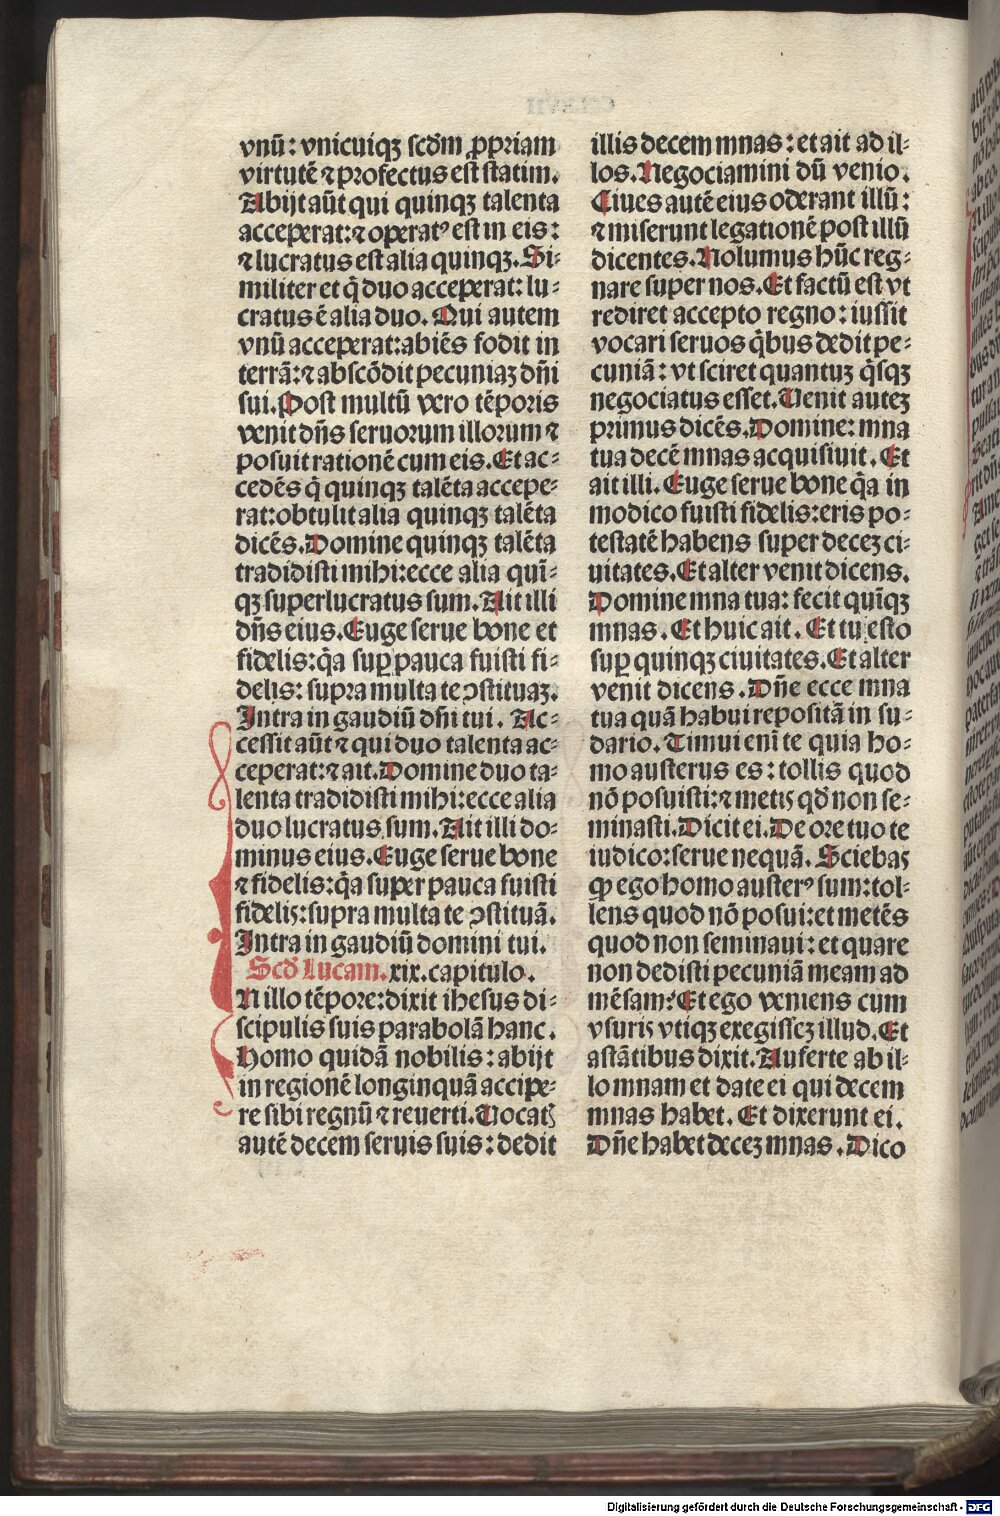 vnū: vnicuiqꝫ scđm ꝓpriam
virtutē ⁊ profectus est statim.
Abijt aūt qui quinqꝫ talenta
acceꝑat:⁊ operatꝰ est in eis:
⁊ lucratus est alia quinqꝫ. Si⸗
militer et q̄ duo acceꝑat: lu⸗
cratus ē alia duo. Qui autem
vnū acceꝑat:abiēs fodit in
terrā:⁊ abscōdit pecuniaꝫ dn̄i
sui. Post multū vero tēporis
venit dn̄s seruorum illorum ⁊
posuit rationē cum eis. Et ac⸗
cedēs q̄ quinqꝫ talēta accepe⸗
rat:obtulit alia quinqꝫ talēta
dicēs. Domine quinqꝫ talēta
tradidisti mihi:ecce alia quī⸗
qꝫ superlucratus sum. Ait illi
dn̄s eius. Euge serue bone et
fidelis:q̄a suꝑ pauca fuisti fi⸗
delis: supra multa te ꝯstituaꝫ.
Intra in gaudiū dn̄i tui. Ac⸗
cessit aūt ⁊ qui duo talenta ac⸗
ceperat:⁊ ait. Domine duo ta⸗
lenta tradidisti mihi:ecce alia
duo lucratus sum. Ait illi do⸗
minus eius. Euge serue bone
⁊ fidelis:q̄a super pauca fuisti
fidelis:supra multa te ꝯstituā.
Intra in gaudiū domini tui.
Scđ Lucam. xix. capitulo.
N illo tēpore:dixit ihesus di⸗
scipulis suis parabolā hanc.
Homo quidā nobilis: abijt
in regionē longinquā acciꝑe⸗
re sibi regnū ⁊ reuerti. Vocatꝭ
autē decem seruis suis: dedit
illis decem mnas: et ait ad il⸗
los. Negociamini dū venio.
Ciues autē eius oderant illū:
⁊ miserunt legationē post illū
dicentes. Nolumus hūc reg⸗
nare super nos. Et factū est vt
rediret accepto regno: iussit
vocari seruos q̄bus dedit pe⸗
cuniā: vt sciret quantuꝫ q̄sqꝫ
negociatus esset. Venit auteꝫ
primus dicēs. Domine: mna
tua decē mnas acquisiuit. Et
ait illi. Euge serue bone q̄a in
modico fuisti fidelis:eris po⸗
testatē habens super deceꝫ ci⸗
uitates. Et alter venit dicens.
Domine mna tua: fecit quīqꝫ
mnas. Et huic ait. Et tu esto
suꝑ quinqꝫ ciuitates. Et alter
venit dicens. Dn̄e ecce mna
tua quā habui repositā in su⸗
dario. Timui enī te quia ho⸗
mo austerus es: tollis quod
nō posuisti:⁊ metis qđ non se⸗
minasti. Dicit ei. De ore tuo te
iudico:serue nequā. Sciebas
ꝙ ego homo austerꝰ sum:tol⸗
lens quod nō posui:et metēs
quod non seminaui: et quare
non dedisti pecuniā meam ad
mēsam? Et ego veniens cum
vsuris vtiqꝫ exegisseꝫ illud. Et
astātibus dixit. Auferte ab il⸗
lo mnam et date ei qui decem
mnas habet. Et dixerunt ei.
Dn̄e habet deceꝫ mnas. Dico
Digitalisierung gefördert durch die Deutsche Forschungsgemeinschaft - DFG